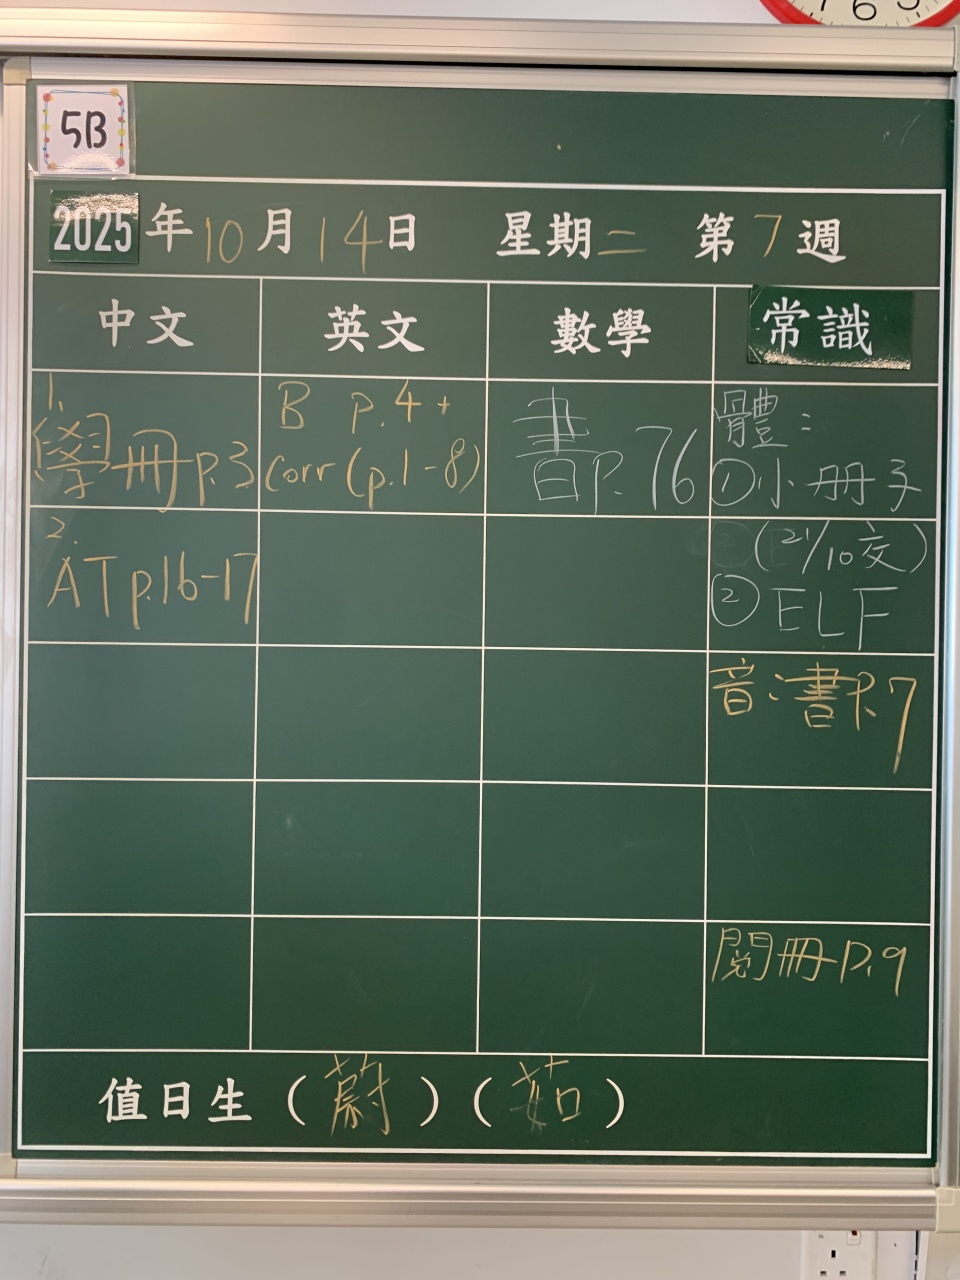 5B
2025年10月14日 星期二 第7週
中文 英文 數學 常識
1.
學冊p.3
2.
AT p.16-17
B p.4 +
corr (p.1-8)
書P.76
體：
①小冊子
(21/10交)
②ELF
音：書P.7
閱冊P.9
值日生（蔚）（茹）